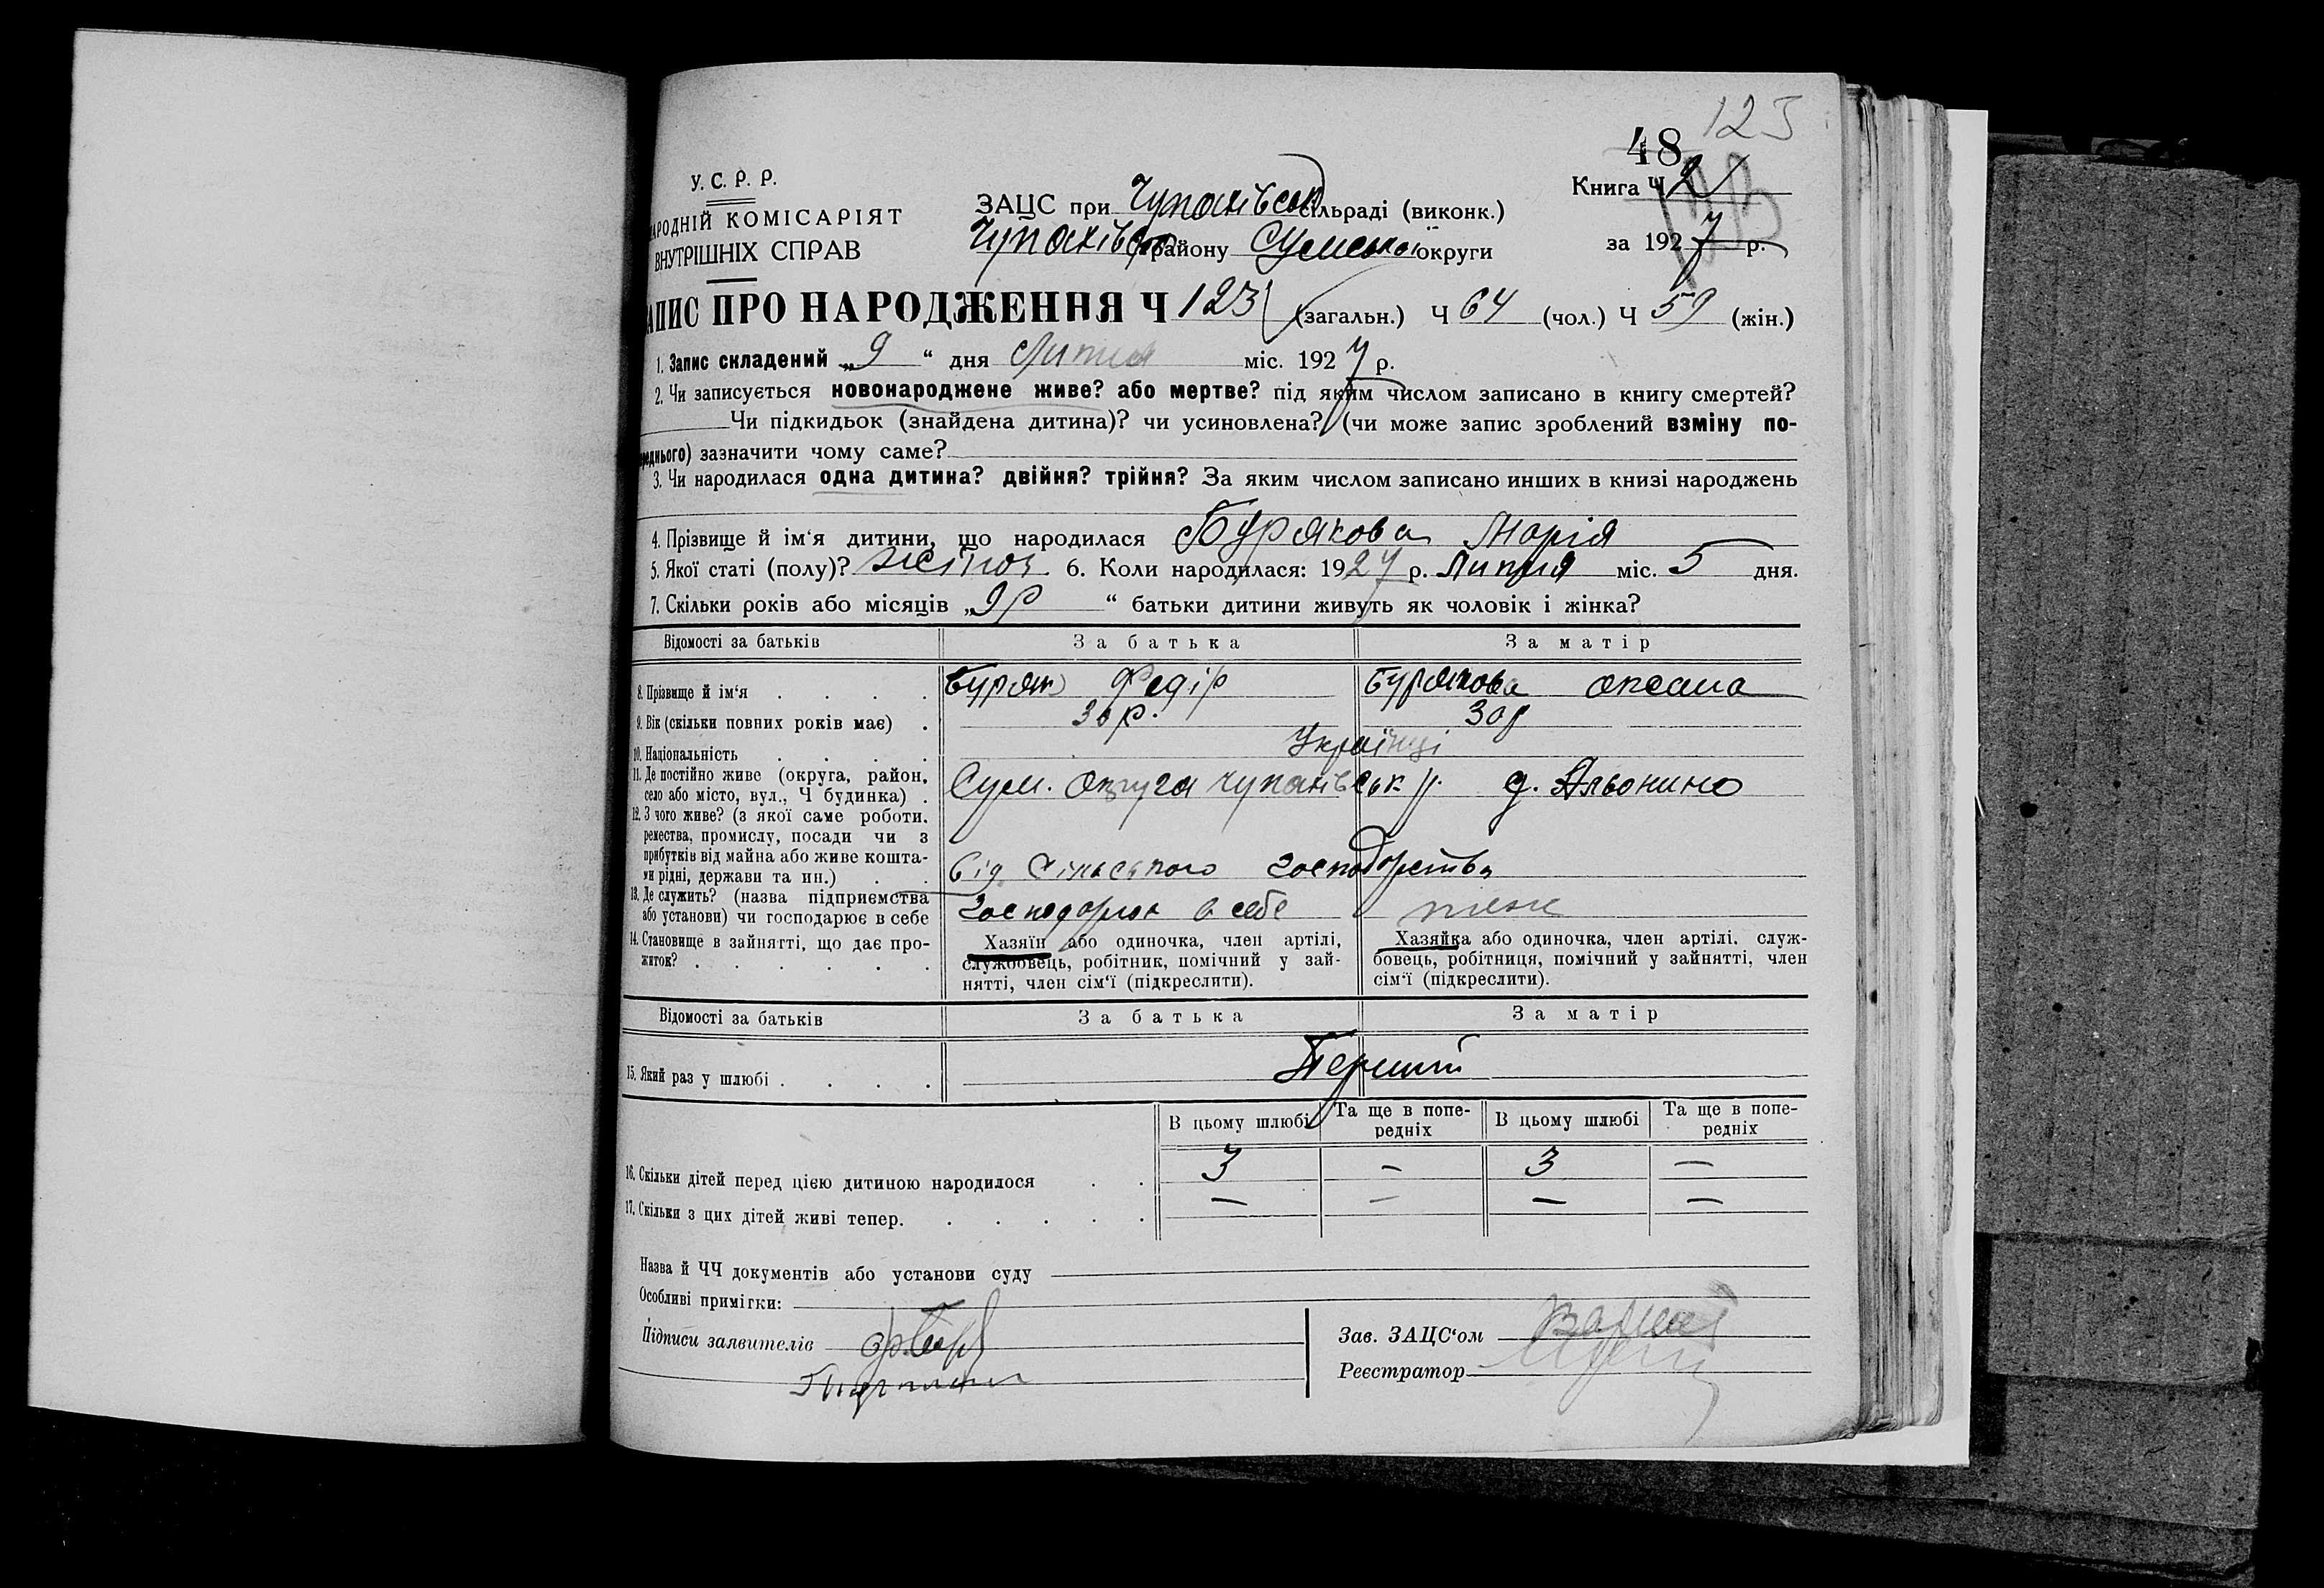 123
48
Книга Ч 2
У. С. Р. Р.
АРОДНІЙ КОМІСАРІЯТ
ВНУТРІШНІХ СПРАВ
ЗАЦС при Чупахівськ сільраді (виконк.)
Чупахівськ району Сумської округи
за 1927 р.
АПИС ПРО НАРОДЖЕННЯ Ч 123 (загальн.) Ч 64 (чол.) Ч 59 (жін.)
1. Запис складений „9“ дня Липня міс. 1927 р.
2. Чи записується новонароджене живе? або мертве? під яким числом записано в книгу смертей?
Чи підкидьок (знайдена дитина)? чи усиновлена? (чи може запис зроблений взміну по-
реднього) зазначити чому саме?
3. Чи народилася одна дитина? двійня? трійня? За яким числом записано инших в книзі народжень
4. Прізвище й ім‘я дитини, що народилася Бурякова Марія
5. Якої статі (полу)? жіноч. 6. Коли народилася: 1927 р. Липня міс. 5 дня.
7. Скільки років або місяців „9 р“ батьки дитини живуть як чоловік і жінка?
Відомості за батьків За батька За матір
8. Прізвище й ім‘я . . . . Буряк Федір Бурякова Оксана
9. Вік (скільки повних років має) . 30 р. 30 р
10. Національність . . . . Українці
11. Де постійно живе (округа, район,
село або місто, вул., Ч будинка) . Сум. округа Чупахівськ р. д. Альонино
12. З чого живе? (з якої саме роботи,
ремества, промислу, посади чи з
прибутків від майна або живе кошта-
ми рідні, держави та ин.) . . від сільського господарства
13. Де служить? (назва підприємства
або установи) чи господарює в себе господарює в себе теж
14. Становище в зайнятті, що дає про-
житок? . . . . . .
Хазяїн або одиночка, член артілі,
службовець, робітник, помічний у зай-
нятті, член сім‘ї (підкреслити).
Хазяйка або одиночка, член артілі, служ-
бовець, робітниця, помічний у зайнятті, член
сім‘ї (підкреслити).
Відомості за батьків За батька За матір
15. Який раз у шлюбі . . . . Перший
В цьому шлюбі Та ще в попе-
редніх В цьому шлюбі Та ще в попе-
редніх
16. Скільки дітей перед цією дитиною народилося . . 3 – 3 –
17. Скільки з цих дітей живі тепер. . . . . . – – – –
Назва й ЧЧ документів або установи суду
Особливі примітки:
Підписи заявителів
Зав. ЗАЦС‘ом
Реєстратор